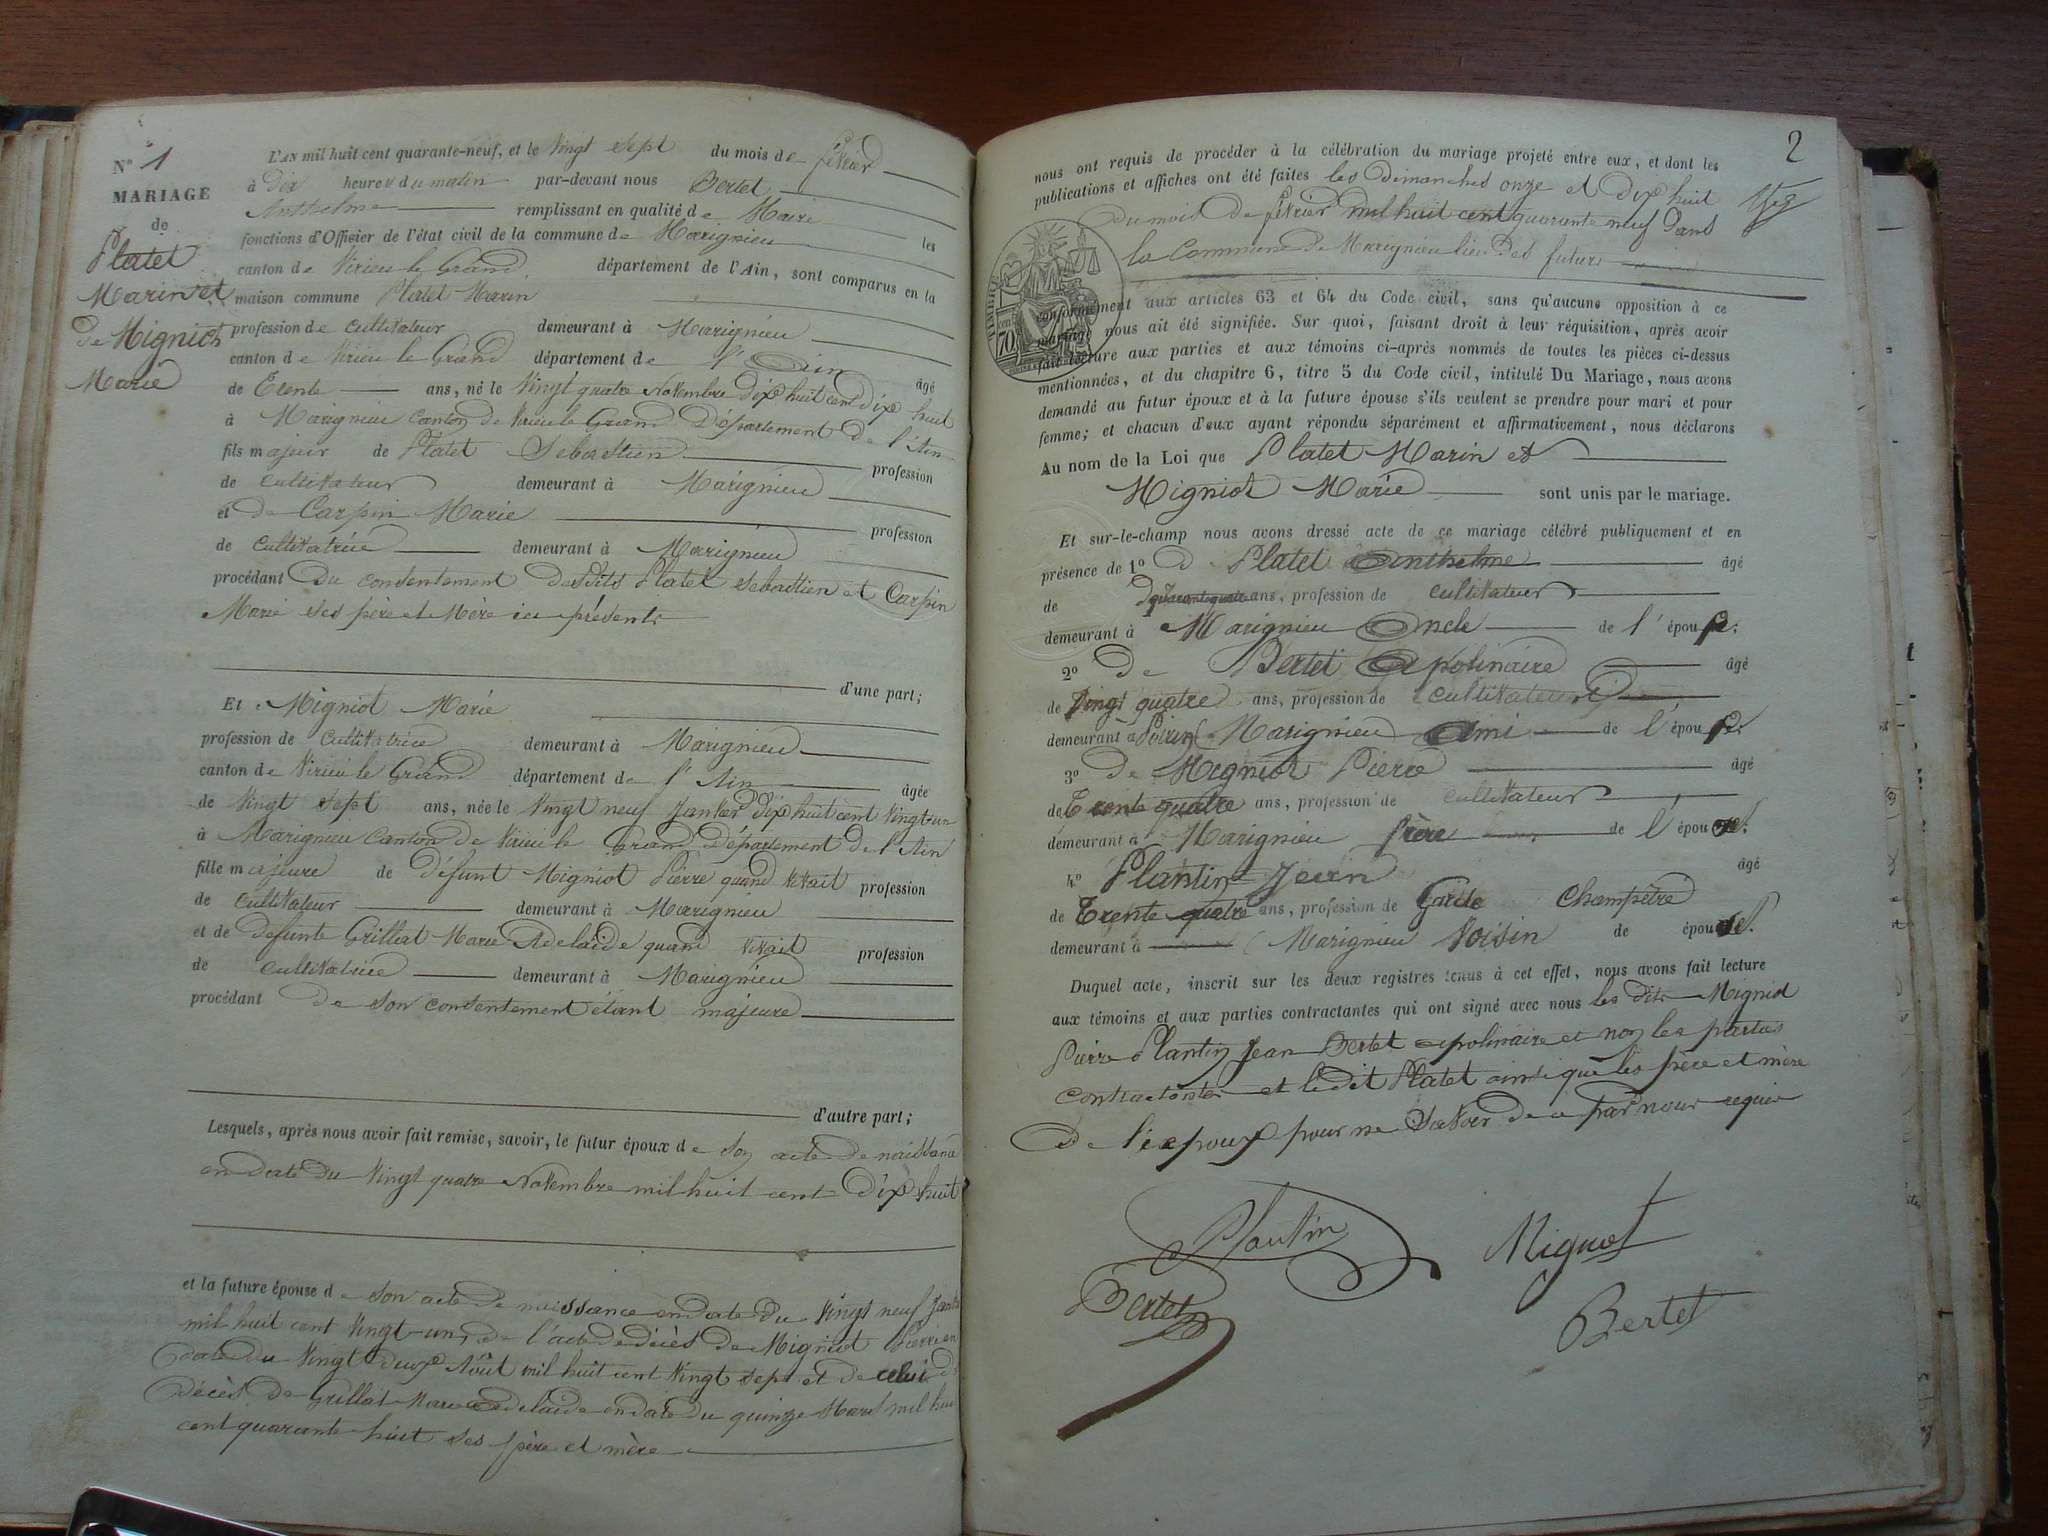 N° 1
MARIAGE
de
Platet
Marin et
de Migniot
Marie
L'AN mil huit cent quarante-neuf, et le Vingt sept du mois de février
à Dix heures du matin par-devant nous Bertet
Anthelme remplissant en qualité de Maire les
fonctions d'Officier de l'état civil de la commune de Marignieu
canton de Virieu le Grand département de l'Ain, sont comparus en la
maison commune Platet Marin
profession de cultivateur demeurant à Marignieu
canton de Virieu le Grand département de l'Ain âgé
de Trente ans, né le Vingt quatre Novembre Dix huit cent dix huit
à Marignieu canton de Virieu le Grand Département de l'Ain
fils majeur de Platet Sebastien profession
de cultivateur demeurant à Marignieu
et de Carpin Marie profession
de cultivatrice demeurant à Marignieu
procédant du consentement desdits Platet sebastien et Carpin
Marie ses père et Mère ici présents
d'une part;
Et Migniot Marie
profession de cultivatrice demeurant à Marignieu
canton de Virieu le Grand département de l'Ain âgée
de Vingt sept ans, née le Vingt neuf Janvier Dix huit cent Vingt-un
à Marignieu canton de Virieu le Grand Département de l'Ain
fille majeure de défunt Migniot Pierre quand vivait profession
de cultivateur demeurant à Marignieu
et de défunte Grillat Marie Adelaïde quand vivait profession
de cultivatrice demeurant à Marignieu
procédant de son consentement étant majeure
d'autre part;
Lesquels, après nous avoir fait remise, savoir, le futur époux de son acte de naissance
en date du Vingt quatre Novembre mil huit cent Dix huit
et la future épouse de son acte de naissance en date du Vingt neuf
mil huit cent Vingt-un, de l'acte de décès de Migniot Pierre en
date du Vingt deux Août mil huit cent Vingt sept et de celui de
décès de Grillat Marie adelaide en date du quinze Mars mil huit
cent quarante huit ses père et mère
2
nous ont requis de procéder à la célébration du mariage projeté entre eux, et dont les
publications et affiches ont été faites les dimanches onze et dix huit
du mois de février mil huit cent quarante neuf dans
la Commune de Marignieu lieu des futurs
TIMBRE
70
conformément aux articles 63 et 64 du Code civil, sans qu'aucune opposition à ce
mariage nous ait été signifiée. Sur quoi, faisant droit à leur réquisition, après avoir
fait lecture aux parties et aux témoins ci-après nommés de toutes les pièces ci-dessus
mentionnées, et du chapitre 6, titre 5 du Code civil, intitulé Du Mariage, nous avons
demandé au futur époux et à la future épouse s'ils veulent se prendre pour mari et pour
femme; et chacun d'eux ayant répondu séparément et affirmativement, nous déclarons
Au nom de la Loi que Platet Marin et
Migniot Marie sont unis par le mariage.
Et sur-le-champ nous avons dressé acte de ce mariage célébré publiquement et en
présence de 1° d Platet Anthelme âgé
de quarante quatre ans, profession de cultivateur
demeurant à Marignieu Oncle de l'époux.
2° de Bertet Apolinaire âgé
de Vingt quatre ans, profession de cultivateur
demeurant à Marignieu Ami de l'époux.
3° de Migniot Pierre âgé
de Trente quatre ans, profession de cultivateur
demeurant à Marignieu frère de l'épouse.
4° Plantin Jean âgé
de Trente quatre ans, profession de Garde Champêtre
demeurant à Marignieu Voisin de épouse.
Duquel acte, inscrit sur les deux registres tenus à cet effet, nous avons fait lecture
aux témoins et aux parties contractantes qui ont signé avec nous les dits Migniot
Pierre Plantin Jean Bertet apolinaire et non les parties
contractantes et ledit Platet ainsi que les père et mère
de l'époux pour ne savoir de ce par nous requis
Plantin
Migniot
Bertet
Bertet